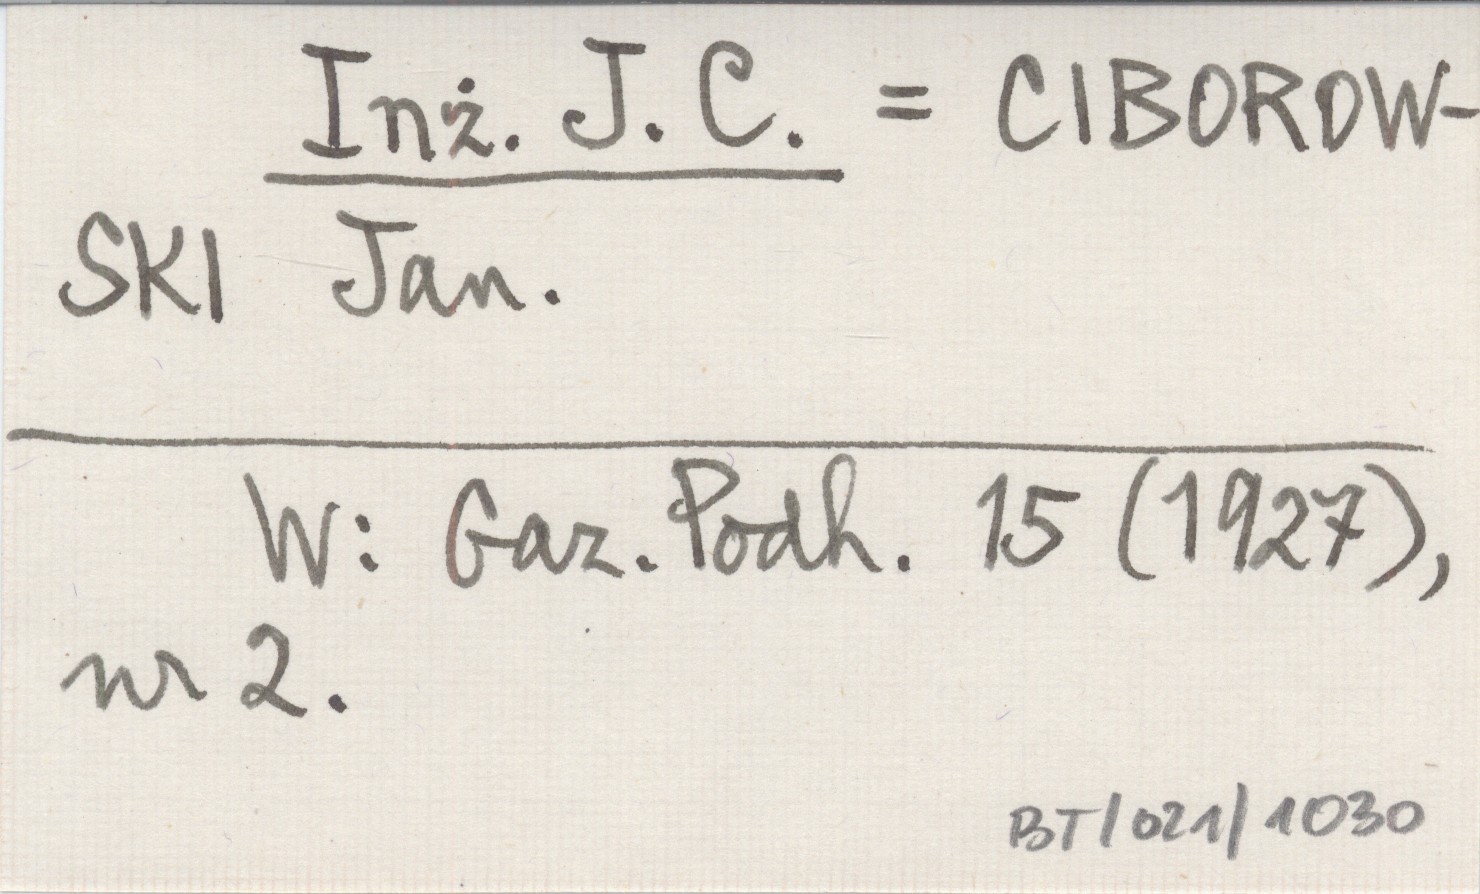 Inż. J. C. = CIBOROW-
SKI Jan.
W: Gaz. Podh. 15 (1927),
nr 2.
BT/021/1030